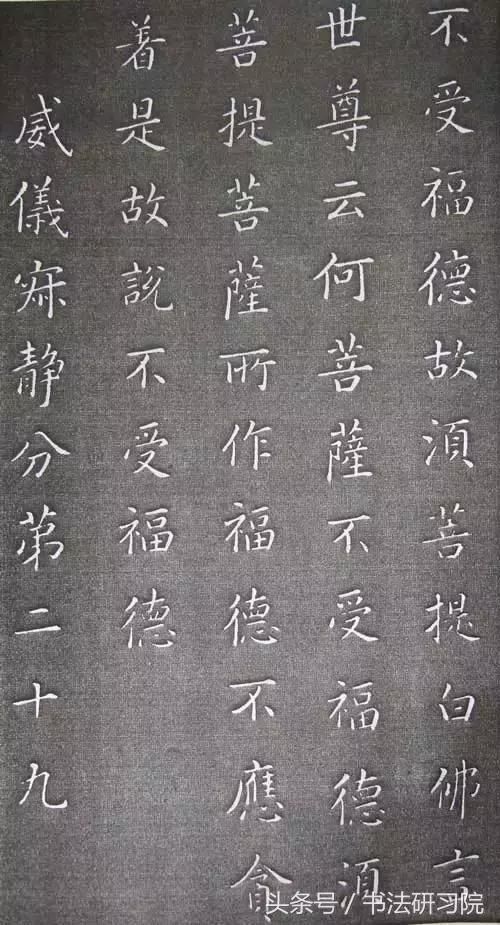 不受福德故湏菩提白佛言
世尊云何菩薩不受福德湏
菩提菩薩所作福德不應貪
着是故說不受福德
威儀寂静分第二十九
头条号/书法研习院